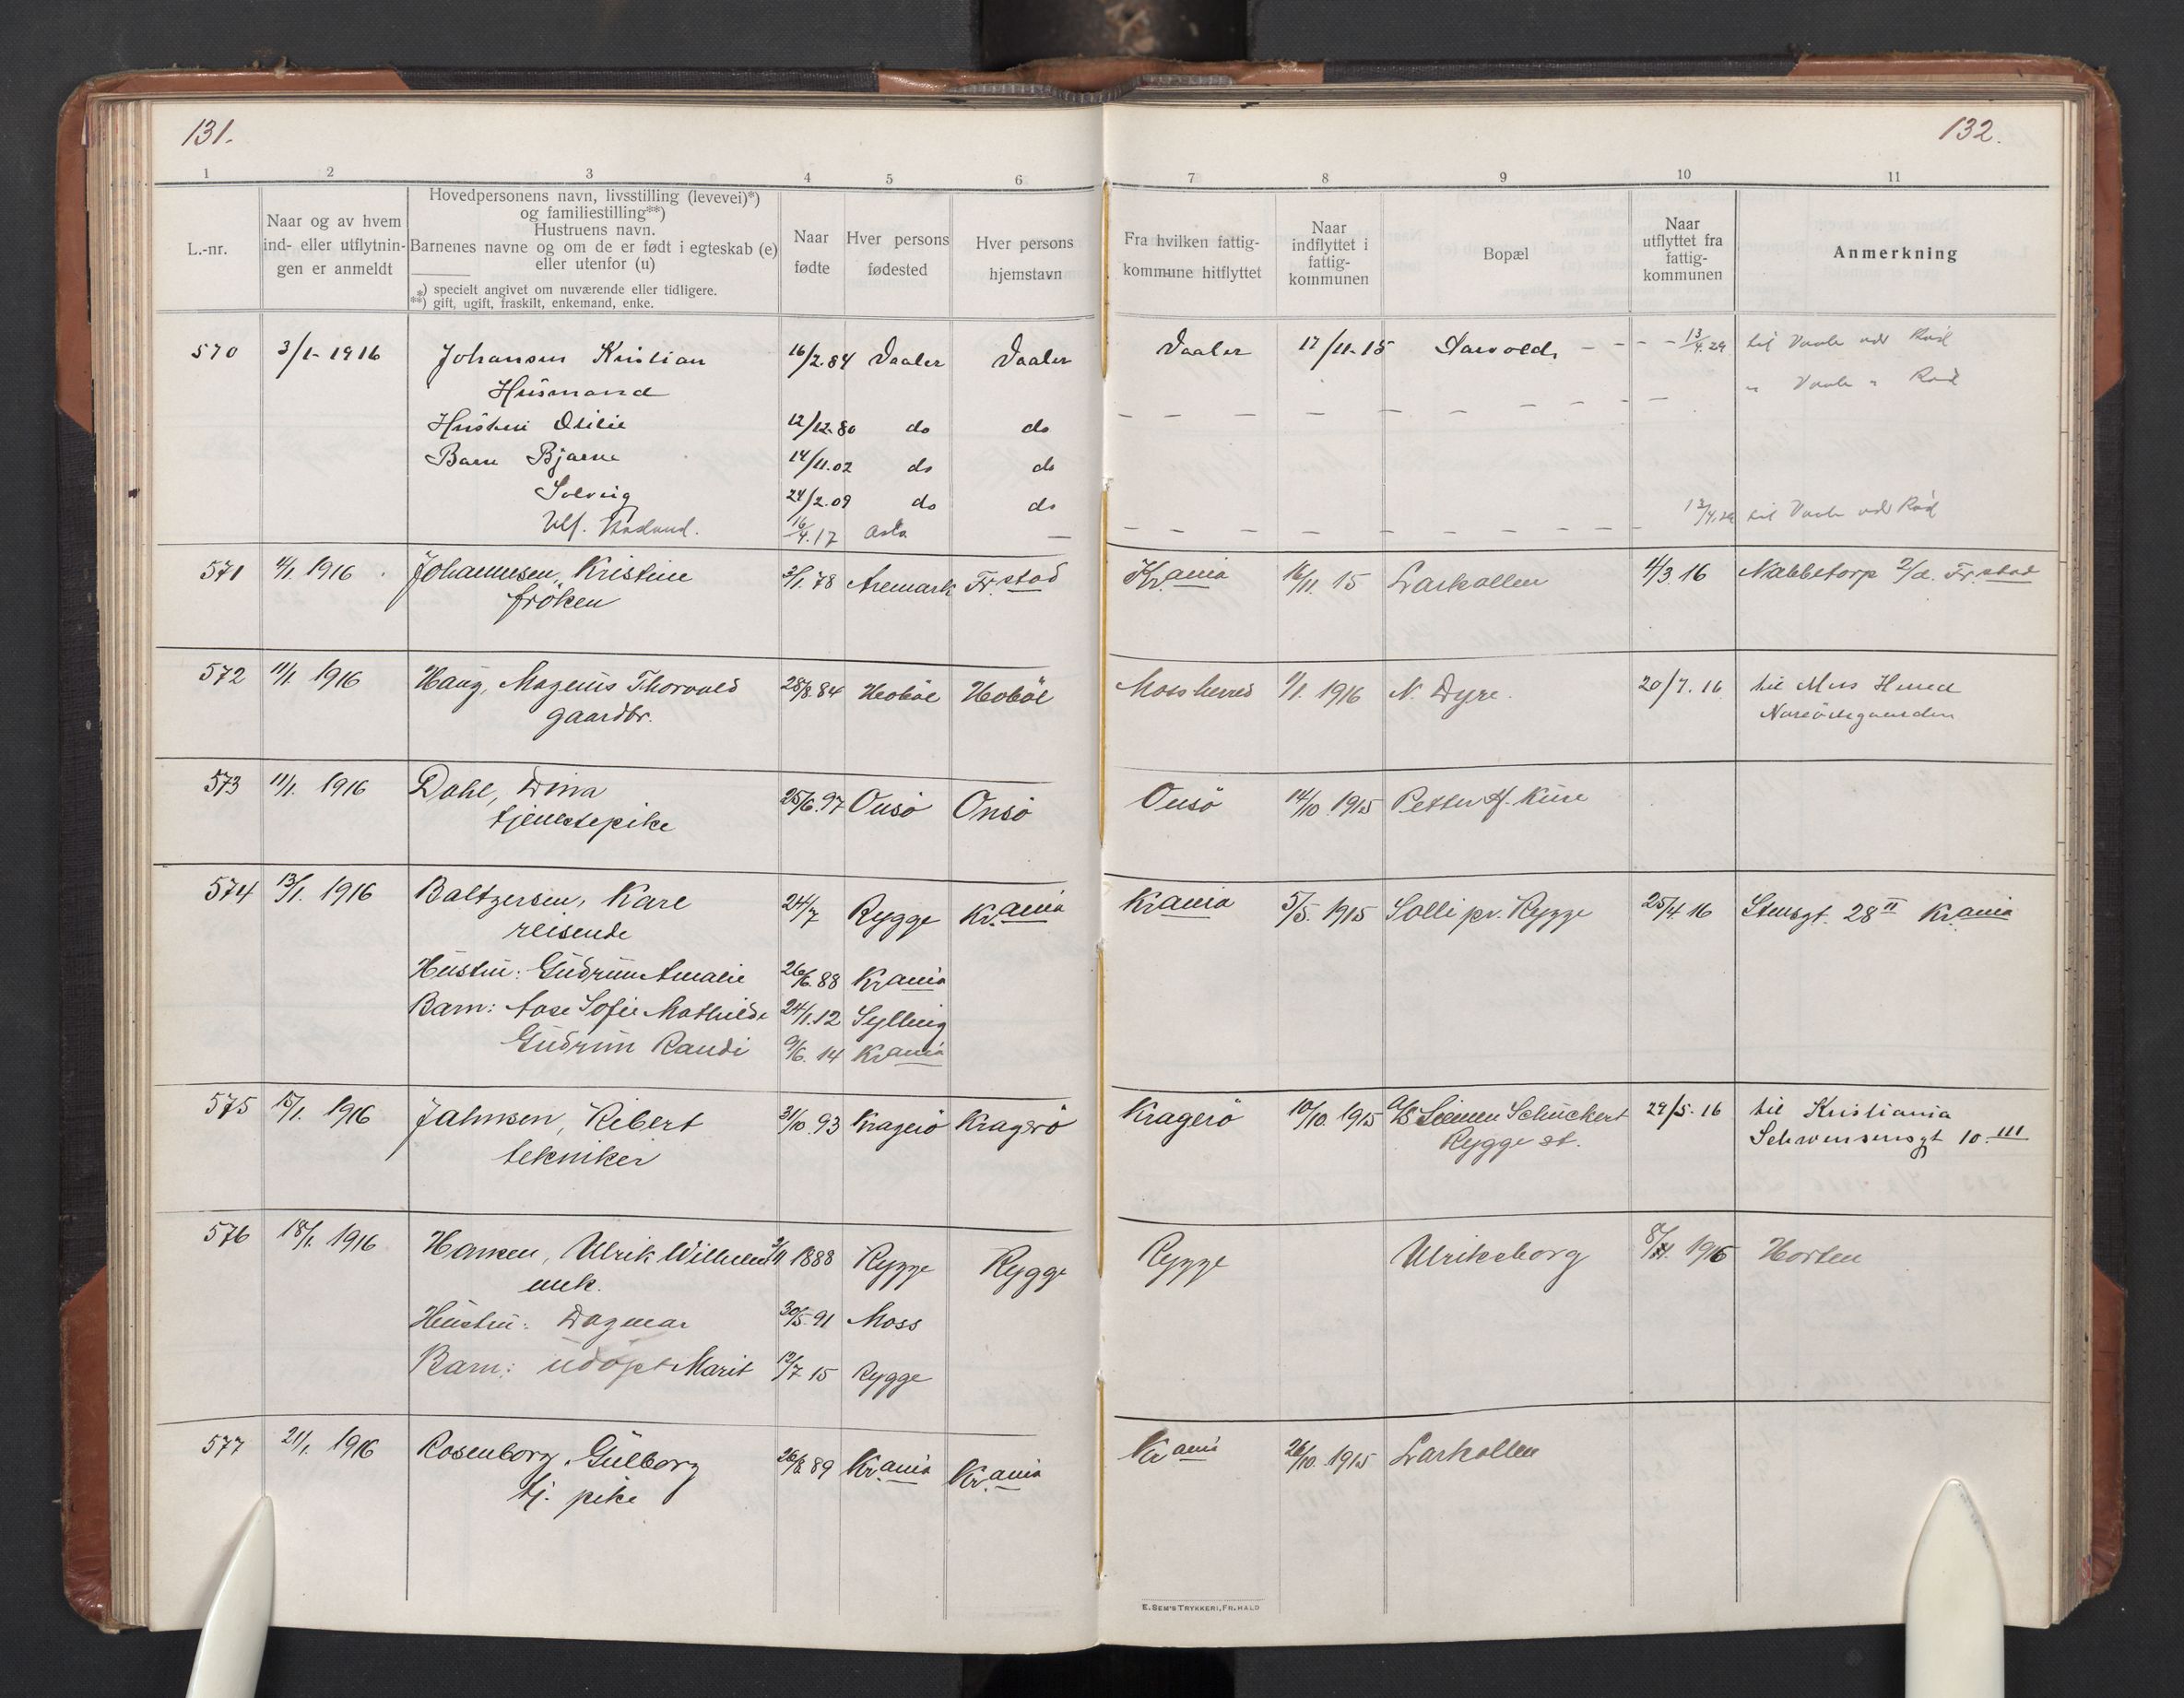 131.
132.
1 2 3 4 5 6 7 8 9 10 11
L.-nr.
Naar og av hvem
ind- eller utflytnin-
gen er anmeldt
Hovedpersonens navn, livsstilling (levevei)*)
og familiestilling**)
Hustruens navn.
Barnenes navne og om de er født i egteskab (e)
eller utenfor (u)
*) specielt angivet om nuværende eller tidligere.
**) gift, ugift, fraskilt, enkemand, enke.
Naar
fødte
Hver persons
fødested
Hver persons
hjemstavn
Fra hvilken fattig-
kommune hitflyttet
Naar
indflyttet i
fattig-
kommunen
Bopæl
Naar
utflyttet fra
fattig-
kommunen
Anmerkning
570 3/1-1916 Johansen Kristian 16/2.84 Vaaler Vaaler Vaaler 17/11-15 - - - 13/4.29 til
Husmand
Hustru Otilie 12/12.80 do do
Barn Bjarne 14/11.02 do do
Solveig 24/2.09 do do
Ulf. 16/4.17 Oslo — til
571 4/1 1916 Johannesen, Kristine 3/1.78 Aremark Fr.stad Kr.ania 16/11 15 Larkollen 4/3.16 Nabbetorp Fr.stad
frøken
572 11/1 1916 Haug, Magnus Thorvald 28/8.84 Hobøl Hobøl Moss herred 1/1 1916 N. Dyre. 20/7.16 til Moss Herred
gaardbr.
573 11/1. 1916 Dahl, Dina 25/6.97 Onsø Onsø Onsø 14/10 1915 Petter A. Kure
tjenestepike
574 13/1. 1916 Baltzersen, Karl 24/7 Rygge Kr.ania Krania 5/5. 1915 Solli pr. Rygge 25/4 16 Stensgt. 28 II Krania
reisende
Hustru: Gudrun Amalie 26/6.88 Krania
Barn: Aase Sofie Mathilde 24/1.12 Sylling
Gudrun Randi 9/6. 14 Krania
575 15/1. 1916 Jahnsen, Ribert 31/10.93 Kragerø Kragerø Kragerø 10/10. 1915 A/S Siemen Schuckert 29/5.16 til Kristiania
tekniker Rygge st. Schwensensgt 10. III
576 18/1. 1916 Hansen, Ulrik Wilhelm 3/11 1888 Rygge Rygge Rygge Ulriksborg 1916 Horten
mek.
Hustru: Dagmar 30/5.91 Moss
Barn: udøpt Marit 12/7 15 Rygge
577 21/1. 1916 Rosenborg, Gulborg 26/8.89 Kr.ania Kr.ania Krania 26/10.1915 Larkollen
tj. pike
E. SEM'S TRYKKERI, FR.HALD